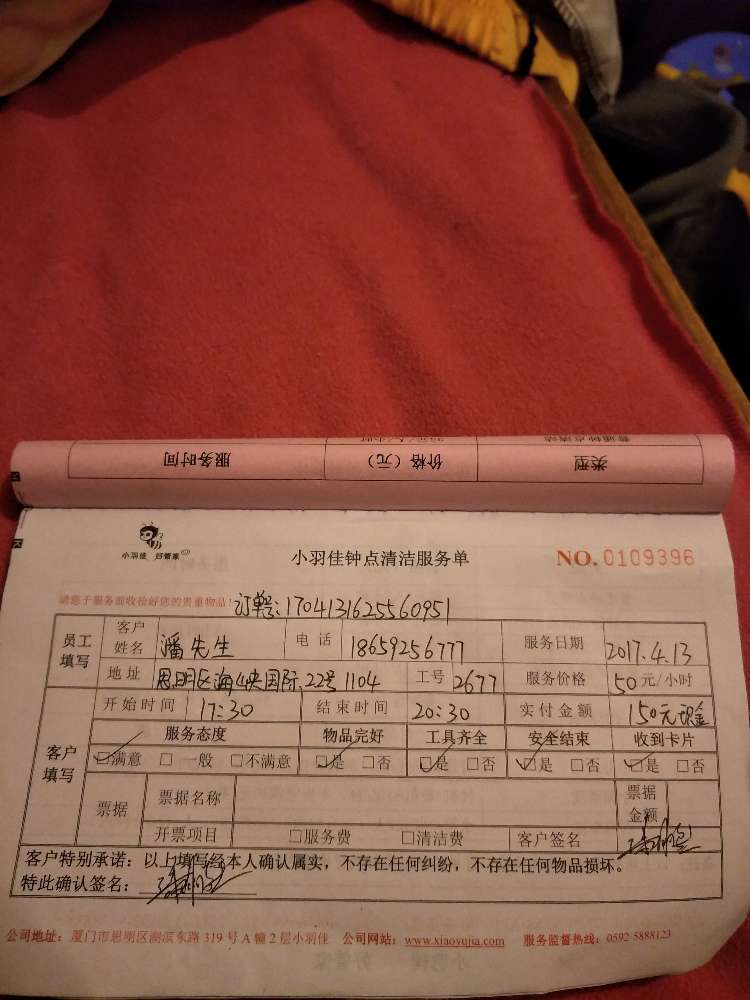 普通钟点清洁
类型 价格（元） 服务时间
小羽佳 好管家
小羽佳钟点清洁服务单 NO. 0109396
请您于服务前收拾好您的贵重物品！ 订单号：1704131625560951
员工填写 客户姓名 潘先生 电话 18659256777 服务日期 2017.4.13
地址 思明区海峡国际22号1104 工号 2677 服务价格 50元/小时
客户填写 开始时间 17:30 结束时间 20:30 实付金额 150元现金
服务态度 物品完好 工具齐全 安全结束 收到卡片
☑满意 □一般 □不满意 ☑是 □否 ☑是 □否 ☑是 □否 ☑是 □否
票据 票据名称 票据金额
开票项目 □服务费 □清洁费 客户签名
客户特别承诺：以上填写经本人确认属实，不存在任何纠纷，不存在任何物品损坏。
特此确认签名：
公司地址：厦门市思明区湖滨东路319号A幢2层小羽佳 公司网站：www.xiaoyujia.com 服务监督热线：0592-5888123